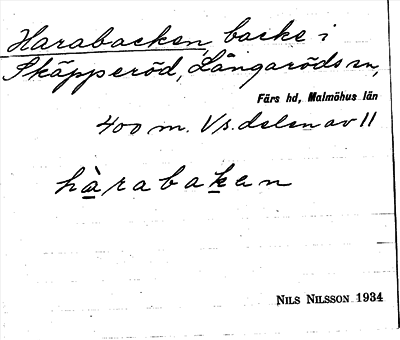 Harabacken, backe i
Skäpperöd, Långaröds sn,
Färs hd, Malmöhus län
400 m. V s. delen av 11
hàrabaken
NILS NILSSON 1934